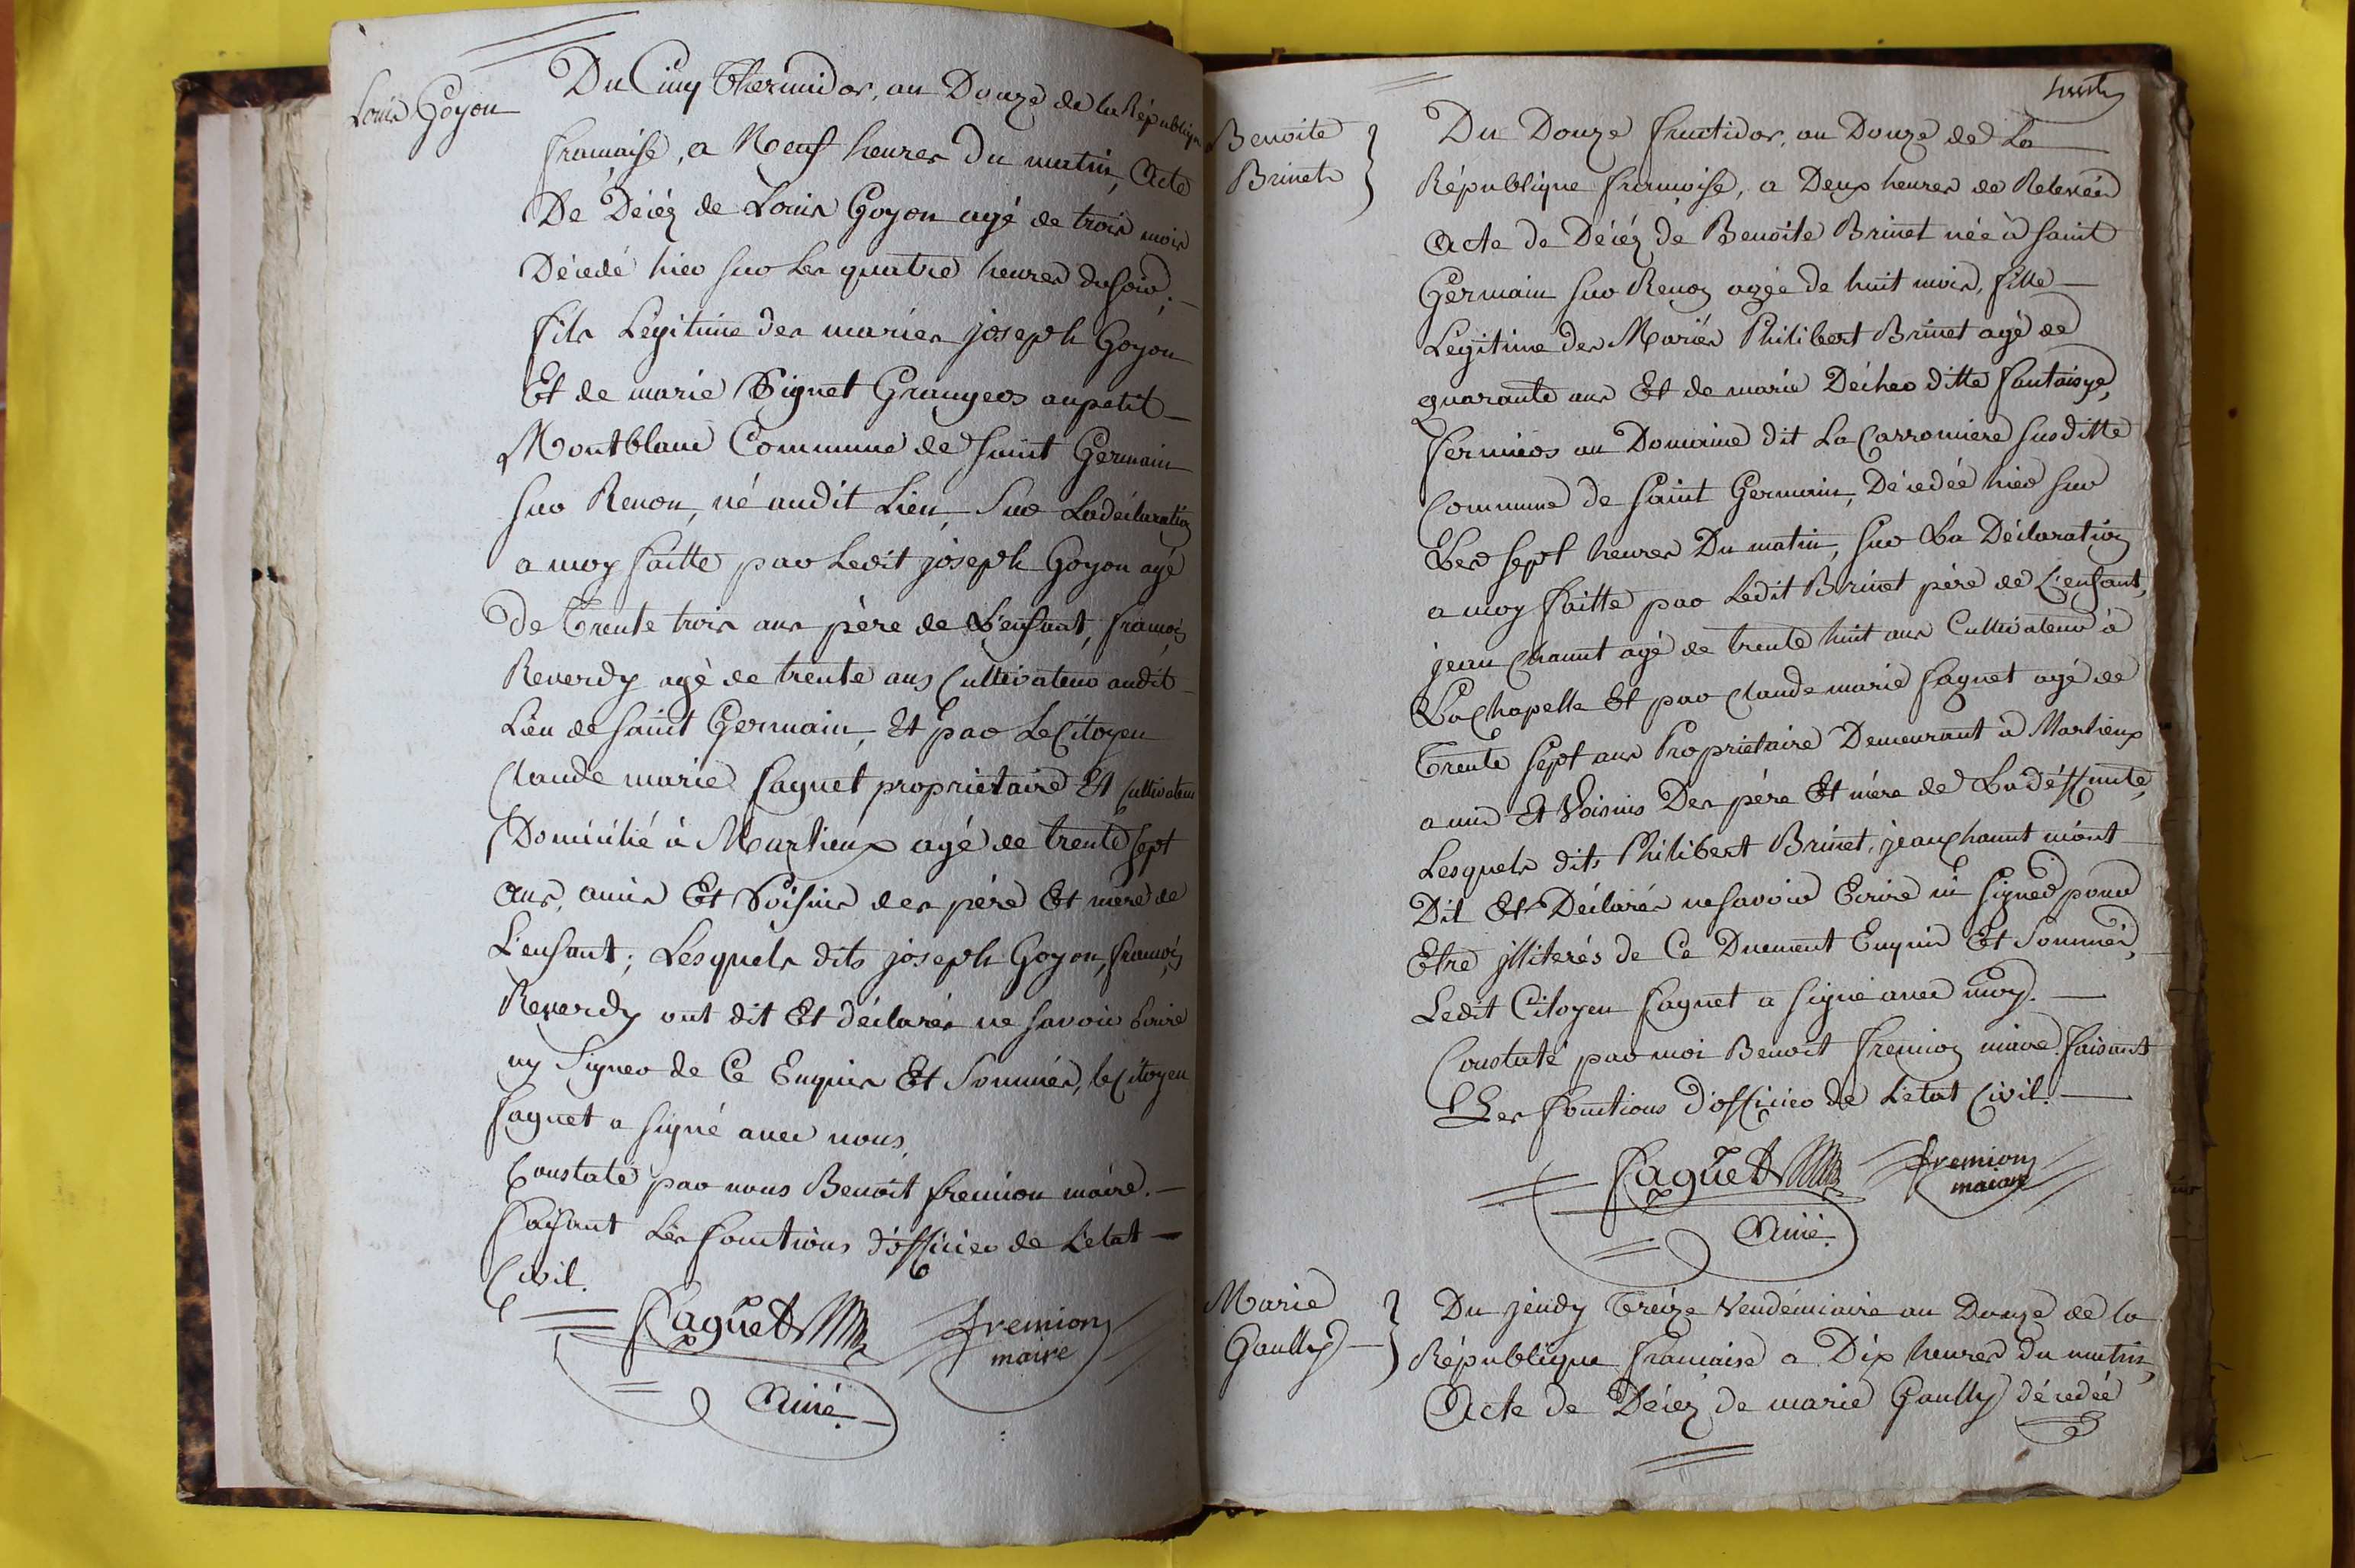 Louis Goyon
Du Cinq Thermidor, an Douze de la République
française, a Neuf heures Du matin, Acte
De Décéz de Louis Goyon agé de trois mois
Décédé hier sur les quatre heures du soir,
fils Légitime des mariés joseph Goyon
Et de marie Signet Granger au petit
Montblanc Commune de saint Germain
sur Renon, né audit Lieu, sur La déclaration
a moy faitte par Ledit joseph Goyon agé
de Trente trois ans père de L'enfant, françois
Reverdy agé de trente ans Cultivateur audit
Lieu de saint Germain, Et par Le Citoyen
Claude marie faguet propriétaire Et Cultivateur
Domicilié à Marlieux agé de trente sept
ans, amis Et Voisins des père Et mère de
L'enfant; Lesquels dits joseph Goyon, françois
Reverdy ont dit Et déclarés ne savoir Ecrire
ny Signer de Ce Enquis Et Sommés, le Citoyen
faguet a signé avec nous,
Constaté par nous Benoit fremion maire.
faisant Les fonctions d'officier de L'etat
Civil.
Faguet fremion
maire
Ainé
Benoite
Brinet
Du Douze fructidor, an Douze de La
République françoise, a Deux heures de Relevée
Acte de Décéz de Benoite Brinet née à saint
Germain sur Renon agée de huit mois, fille
Légitime des Mariés Philibert Brinet agé de
quarante ans Et de marie Décher ditte fantaisye,
fermiers au Domaine dit La Carronniere susditte
Commune de saint Germain, Décédée hier sur
Les sept heures Du matin, sur La Déclaration
a moy faitte par Ledit Brinet père de L'enfant,
jean Chanut agé de trente huit ans Cultivateur à
La Chapelle Et par Claude marie faguet agé de
Trente sept ans Propriétaire Demeurant à Marlieux
amis Et Voisins Des père Et mère de La déffunte,
Lesquels dits Philibert Brinet, jean Chanut m'ont
Dit Et Déclarés ne savoir Ecrire ni signer pour
Etre jlliterés de Ce Duement Enquis Et Sommés,
Ledit Citoyen faguet a signé avec moy.
Constaté par moi Benoit fremion maire faisant
Les fonctions d'officier de L'etat Civil.
Faguet fremion
maire
Ainé
Marie
Gaully
Du jeudy Treize Vendémiaire an Douze de la
République française a Dix heures Du matin,
Acte de Décéz de marie Gaully décédée